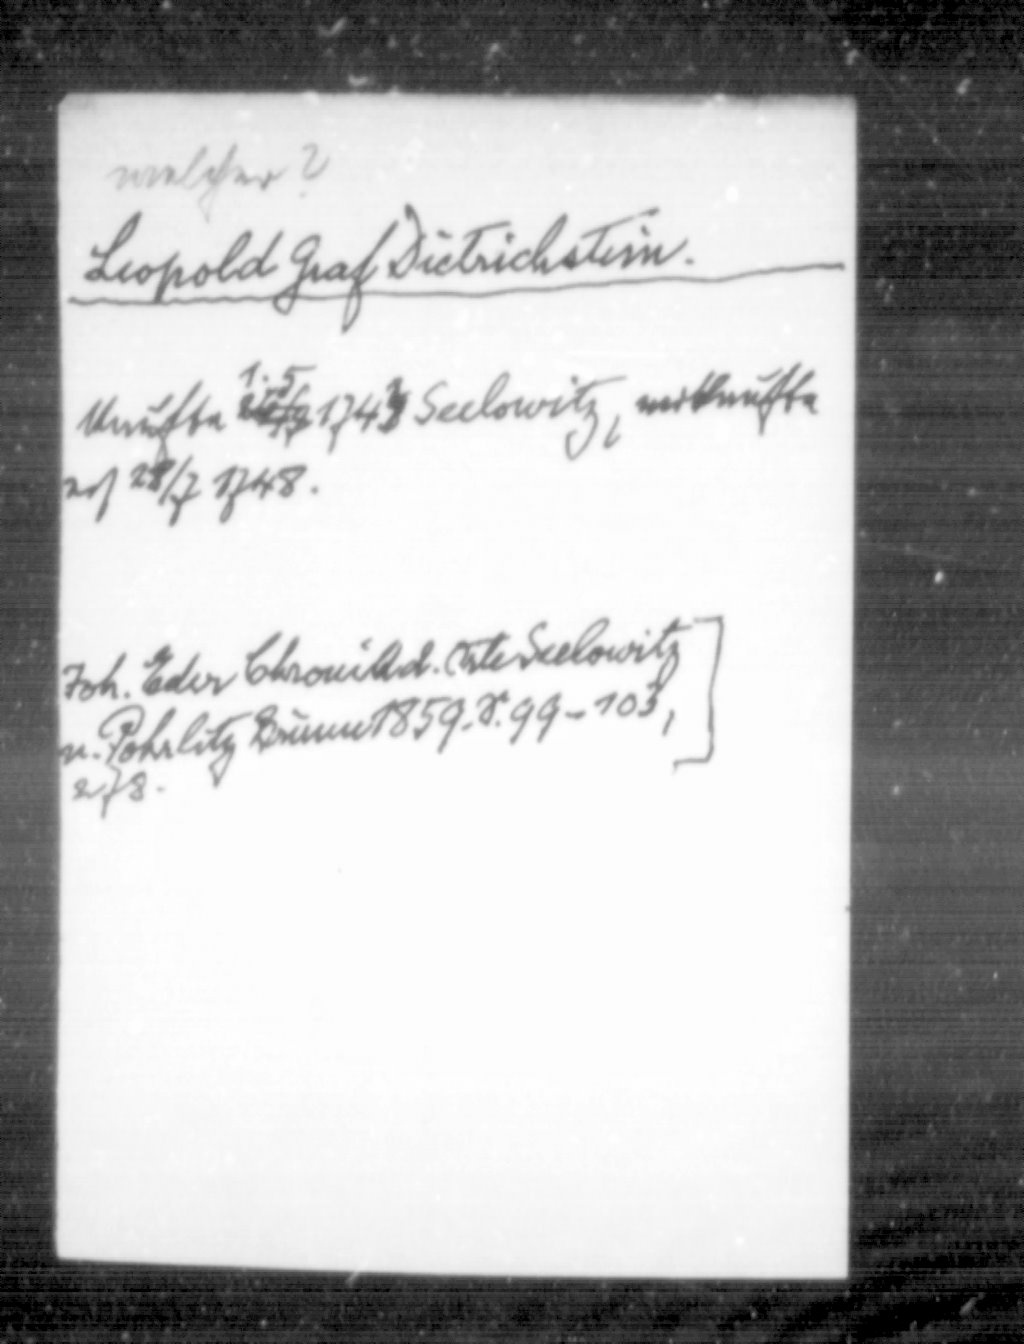 welcher?
Leopold Graf Dietrichstein.
kaufte 1.5 1743 Seelowitz, verkaufte
es 28/7 1748.
Joh. Eder Chronik d. Orte Seelowitz
u. Pohrlitz Brünn 1859. S. 99 - 103,